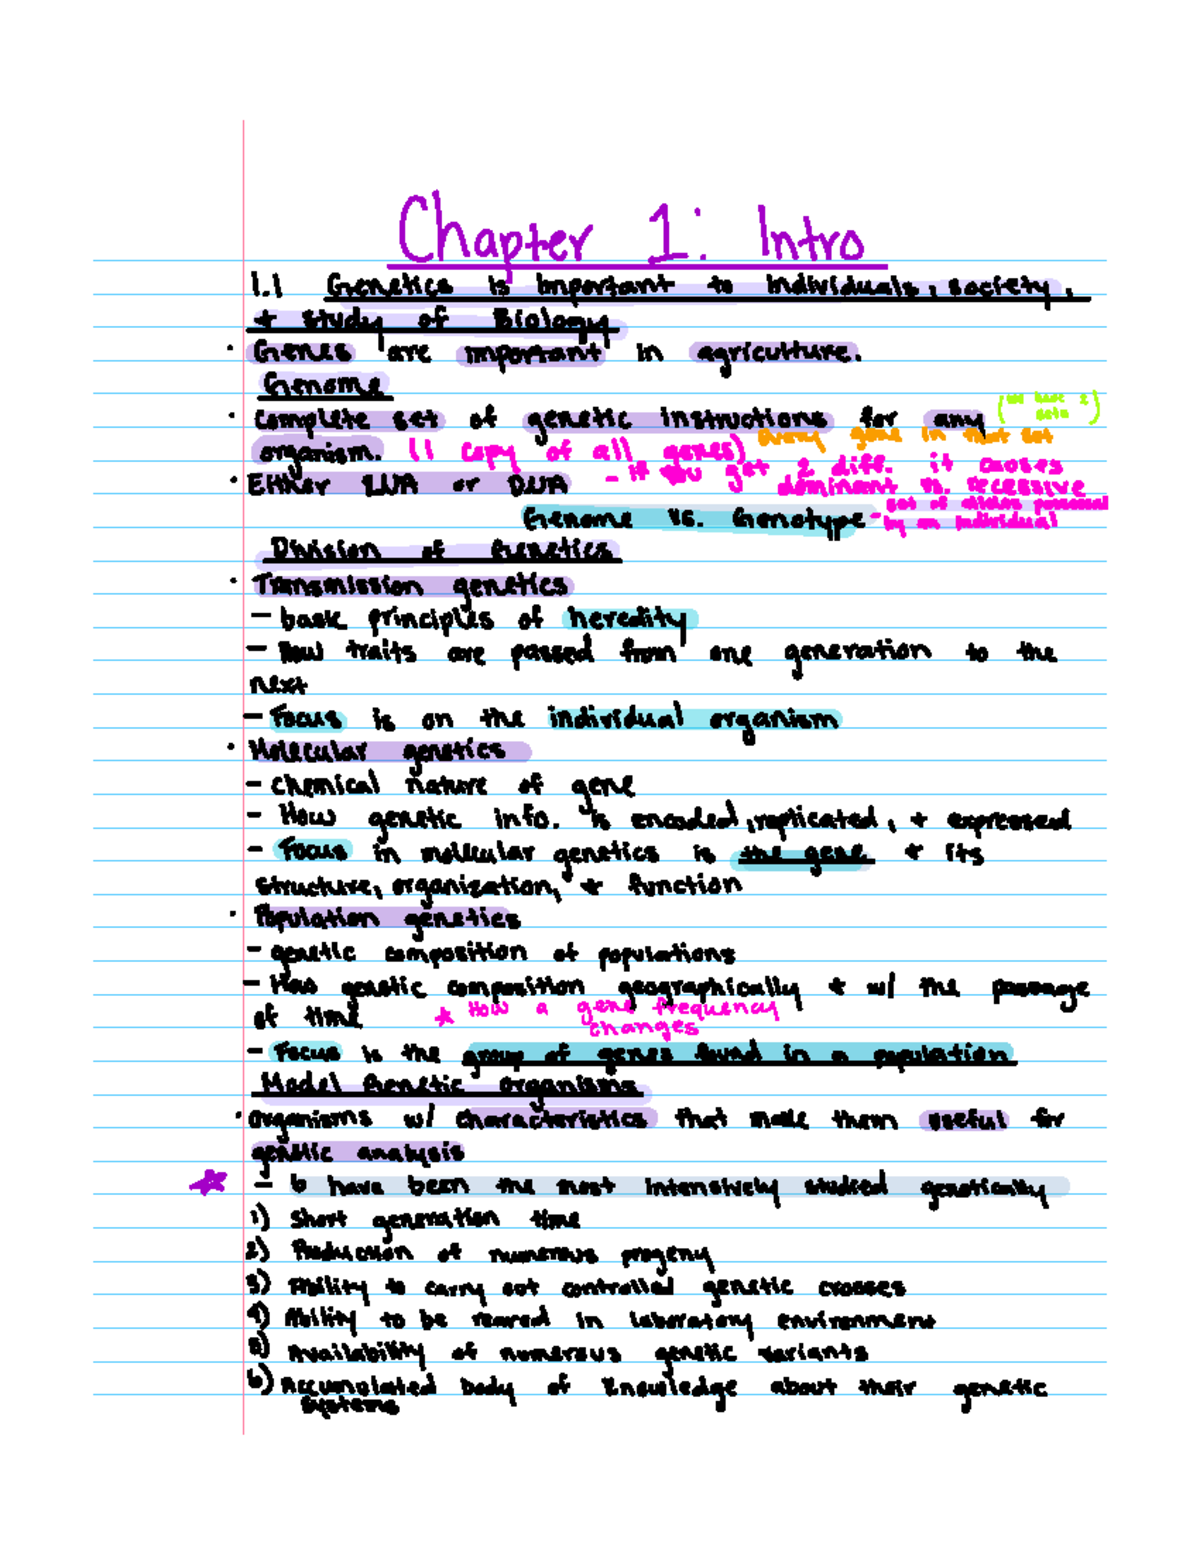 Chapter 1: Intro
1.1 Genetics is Important to Individuals, society,
+ study of Biology
· Genes are important in agriculture.
Genome
· complete set of genetic instructions for any (we have 2 sets)
organism. (1 copy of all genes) every gene in that set
· Either RNA or DNA - if you get 2 diff. it causes
dominant vs. recessive
Genome vs. Genotype - set of alleles possessed
by an individual
Division of Genetics
· Transmission genetics
- basic principles of heredity
- How traits are passed from one generation to the
next
- Focus is on the individual organism
· Molecular genetics
- chemical nature of gene
- How genetic info. is encoded, replicated, + expressed
- Focus in molecular genetics is the gene + its
structure, organization, + function
· Population genetics
- genetic composition of populations
- How genetic composition geographically + w/ the passage
of time * How a gene frequency
changes
- Focus is the group of genes found in a population
Model Genetic organisms
· organisms w/ characteristics that make them useful for
genetic analysis
- 6 have been the most intensively studied genetically
1) Short generation time
2) Production of numerous progeny
3) Ability to carry out controlled genetic crosses
4) Ability to be reared in laboratory environment
5) Availability of numerous genetic variants
6) Accumulated body of knowledge about their genetic
systems